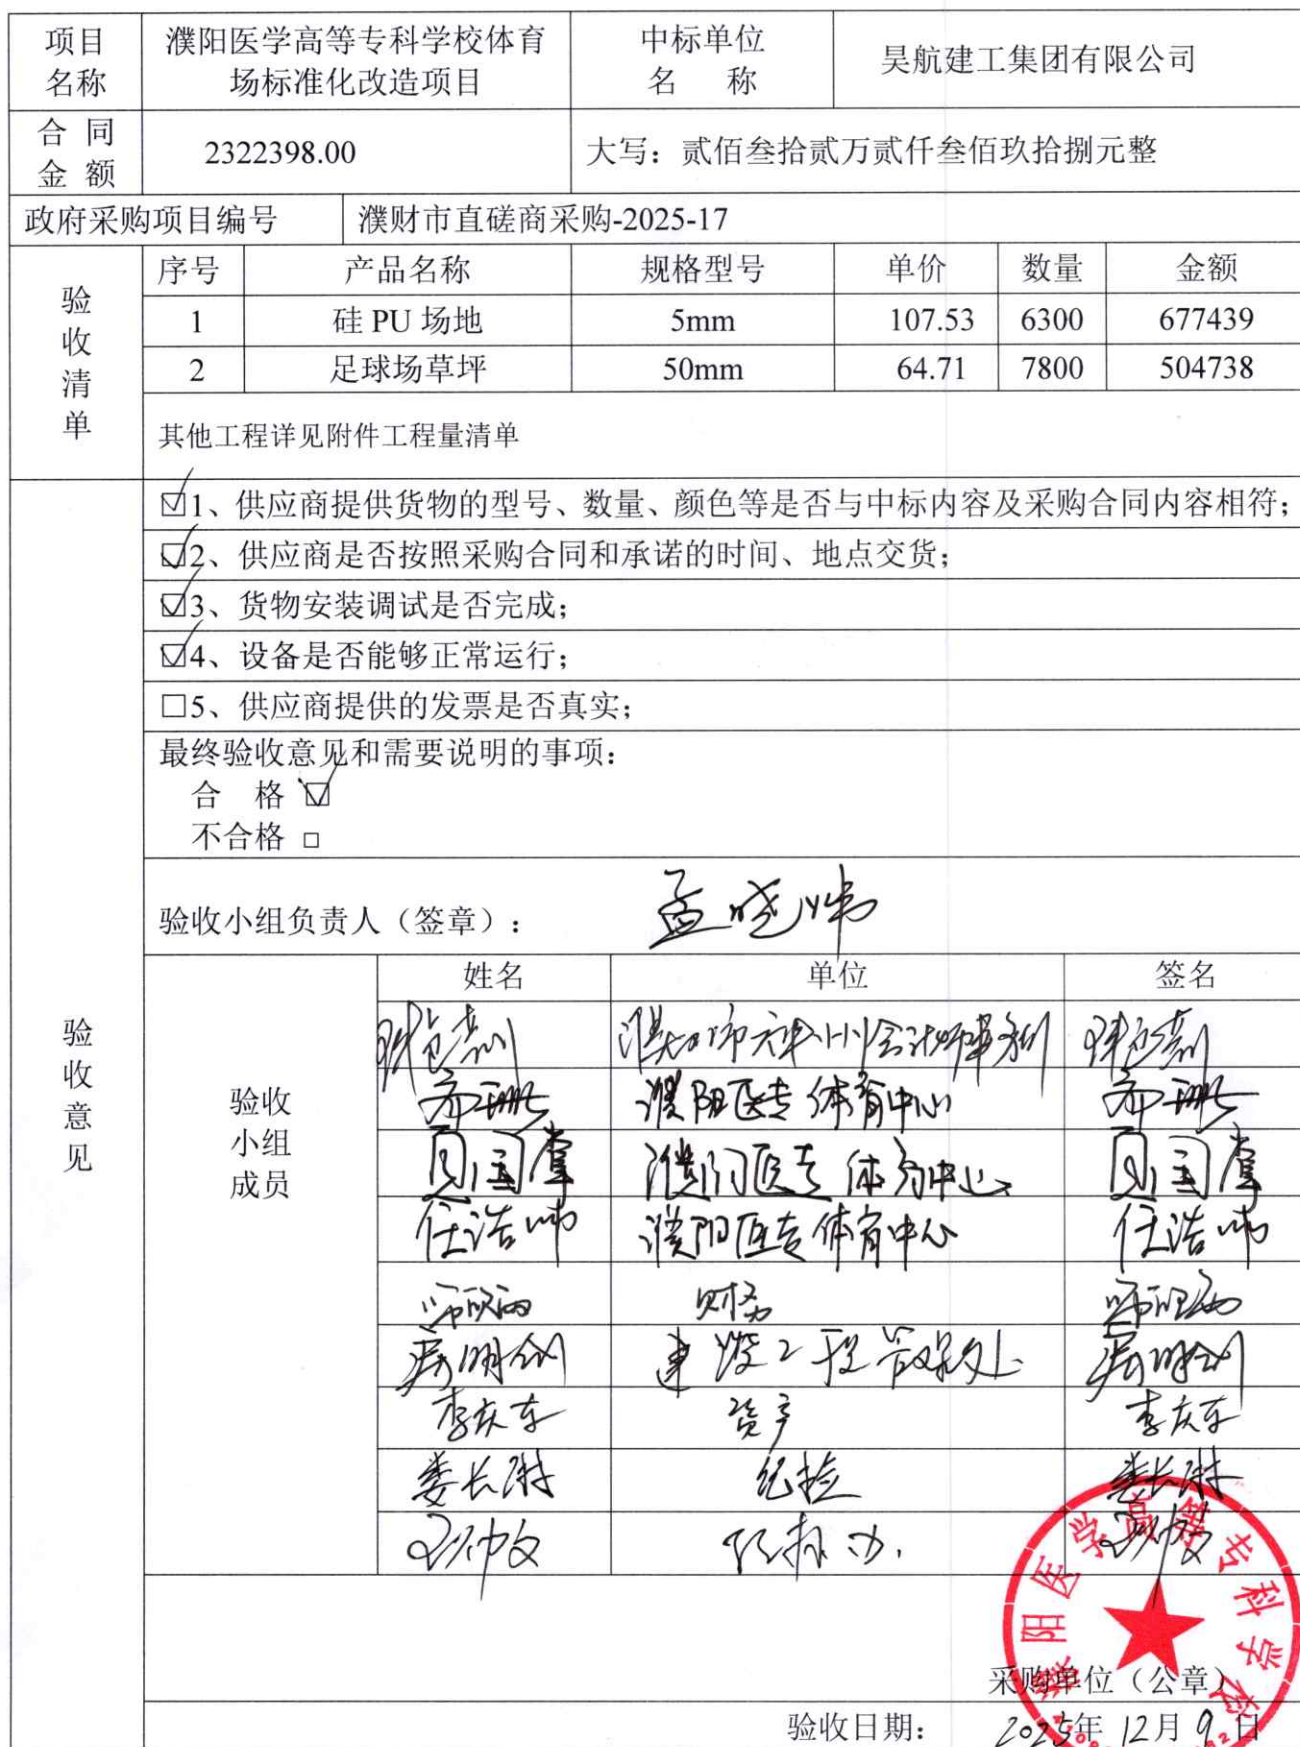 项目名称 濮阳医学高等专科学校体育场标准化改造项目 中标单位名 称 昊航建工集团有限公司
合同金额 2322398.00 大写：贰佰叁拾贰万贰仟叁佰玖拾捌元整
政府采购项目编号 濮财市直磋商采购-2025-17
验收清单 序号 产品名称 规格型号 单价 数量 金额
1 硅 PU 场地 5mm 107.53 6300 677439
2 足球场草坪 50mm 64.71 7800 504738
其他工程详见附件工程量清单
验收意见
☑1、供应商提供货物的型号、数量、颜色等是否与中标内容及采购合同内容相符；
☑2、供应商是否按照采购合同和承诺的时间、地点交货；
☑3、货物安装调试是否完成；
☑4、设备是否能够正常运行；
□5、供应商提供的发票是否真实；
最终验收意见和需要说明的事项：
合 格 ☑
不合格 □
验收小组负责人（签章）： 孟晓炜
验收小组成员 姓名 单位 签名
濮阳医专体育中心
濮阳医专体育中心
任浩帅 濮阳医专体育中心 任浩帅
财务
建设工程管理处
李庆东 资产 李庆东
娄长胜 纪检 娄长胜
濮阳医学高等专科学校
采购单位（公章）
验收日期： 2025年 12月 9日